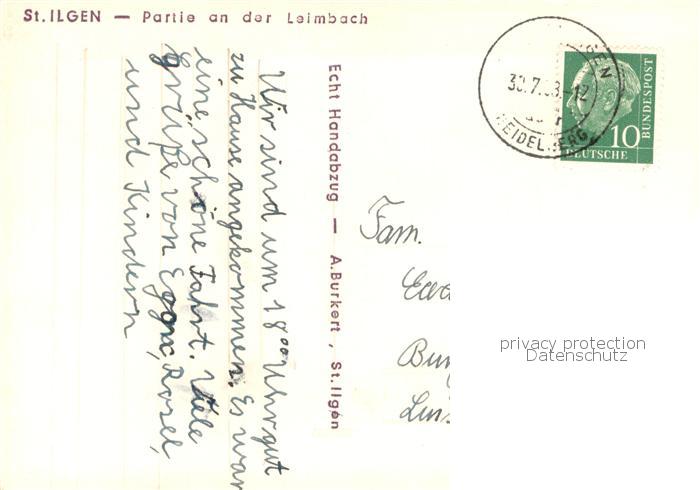 St. ILGEN — Partie an der Leimbach
Wir sind um 18⁰⁰ Uhr gut
zu Hause angekommen. Es war
eine schöne Fahrt. Viele
Grüße von Egon, Rosel,
und Kindern
Echt Handabzug — A. Burkert, St. Ilgen
30.7.
-12
HEIDELBERG
10
DEUTSCHE
BUNDESPOST
Fam.
privacy protection
Datenschutz